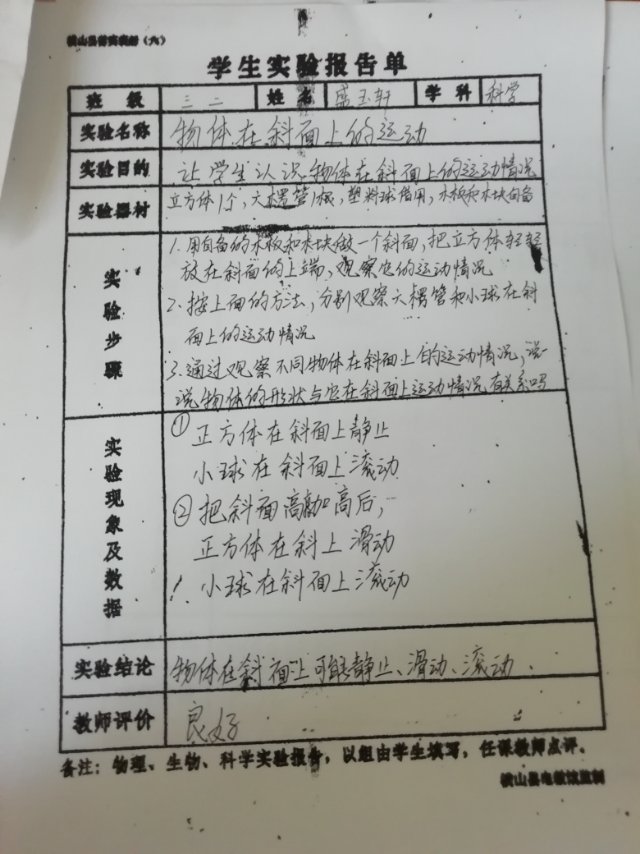 横山县教实表册（六）
学生实验报告单
班 级 三二 姓 名 盛玉轩 学 科 科学
实验名称 物体在斜面上的运动
实验目的 让学生认识物体在斜面上的运动情况
实验器材 立方体1个，大楷管1截，塑料球借用，木板和木块自备
实验步骤
1. 用自备的木板和木块做一个斜面，把立方体轻轻
放在斜面的上端，观察它的运动情况
2. 按上面的方法，分别观察大楷管和小球在斜
面上的运动情况
3. 通过观察不同物体在斜面上的运动情况，说
说物体的形状与它在斜面上运动情况有关系吗
实验现象及数据
① 正方体在斜面上静止
小球在斜面上滚动
② 把斜面高度加高后，
正方体在斜上滑动
小球在斜面上滚动
实验结论 物体在斜面上可能静止、滑动、滚动．
教师评价 良好
备注：物理、生物、科学实验报告，以组由学生填写，任课教师点评。
横山县电教馆监制